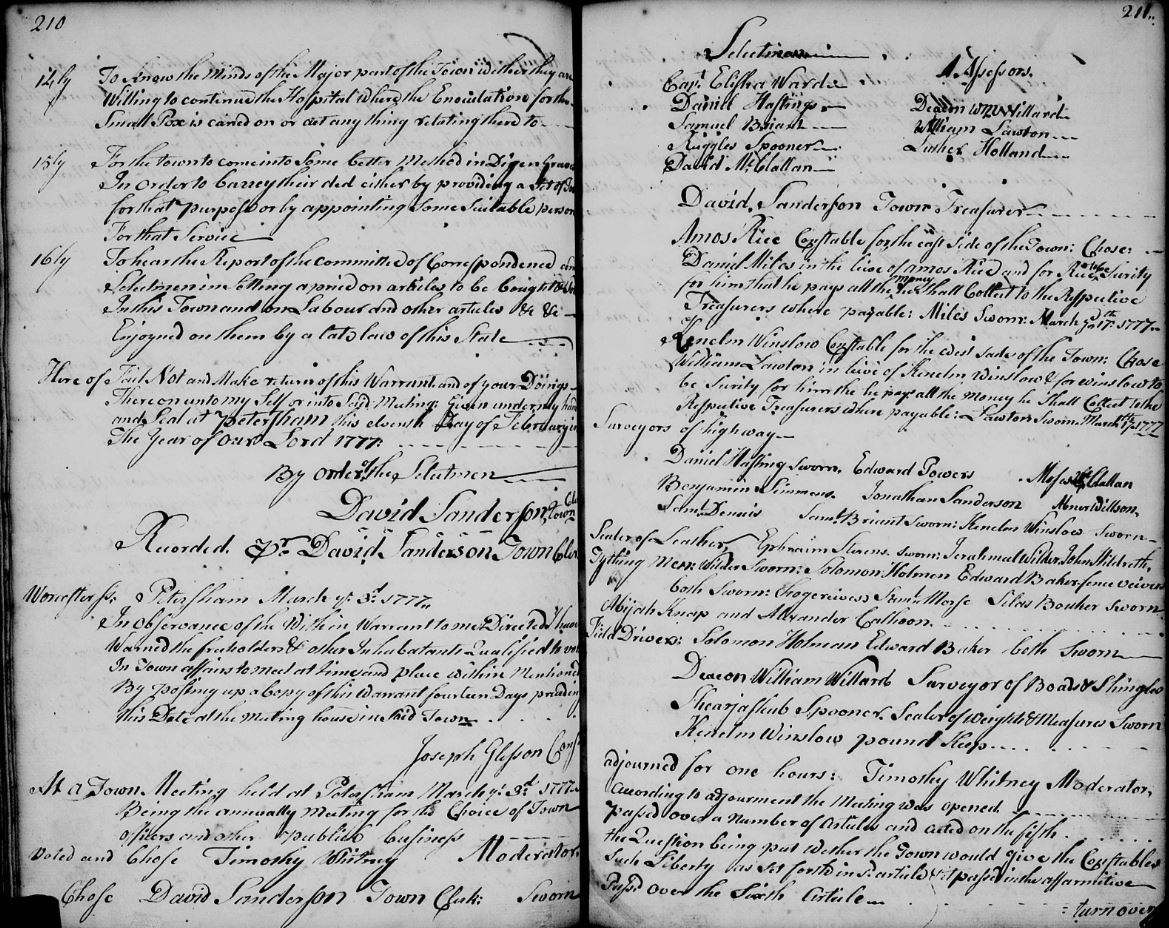 210
14ly To know the Minds of the Major part of the Town wether they are
Willing to continue the Hospital where the Enoculation for the
Small Pox is caried on or act any thing relating there to
15ly For the town to come into Some better Method in Digen Graves
In Order to Carrey their ded either by providing a Set of
for that purpose or by appointing Some Suitable person
For that Service
16ly To hear the Report of the Committe of Correspondence and
Selectmen in Setting a price on articles to be bought & Sold
In this Town and on Labour and other articles &c &c
Enjoyned on them by a late law of this State
Here of Fail Not and Make return of this Warrant and of your Doings
There on unto my Self or into Said Meeting: Given under my hand
and Seal at Petersham this eleventh Day of February in
The Year of Our Lord 1777
By Order of the Selectmen
David Sanderson Town Cle
Recorded. Pr. David Sanderson Town Cler
Worcester ss. Petersham March ye 3d 1777
In observance of the Within Warrant to me Directed I have
Warned the freeholders & other Inhabatants Qualified to vote
In Town affairs to meet at time and place within Mentioned
By posting up a Copy of this Warrant fourteen Days preceding
this Date at the Meeting house in Said Town
Joseph Gleason Cons
At a Town Meeting held at Petersham March ye 3d 1777
Being the annually Meeting for the Choice of Town
officers and other publick business
Voted and Chose Timothy Whitney Moderator
Chose David Sanderson Town Clerk: Sworn
211
Selectmen
Assessors.
Cap. Elisha Ward
Daniel Hastings
Deacon Wm Willard
Samuel Briant
William Lawton
Ruggles Spooner
Luther Holland
David McClallan
David Sanderson Town Treasurer
Amos Rice Constable for the east Side of the Town: Chose:
Daniel Miles in the lieue of Amos Rice and for Rice to be Surity
for him that he pays all the money he Shall Collect to the Respective
Treasurers where payable: Miles Sworn: March ye 17th 1777
Kenelm Winslow Constable for the west Side of the Town: Chose
William Lawton in lieue of Kenelm Winslow & for winslow to
be Surity for him the he pay all the Money he Shall Collect to the
Respective Treasurers where payable: Lawton Sworn March 17th 1777
Surveyors of highway
Daniel Hasting Sworn. Edward Powers Moses McClallan
Benjamin Simmons Jonathan Sanderson Abner Willson
Sam. Dennis Saml Briant Sworn: Kenelm Winslow Sworn
Sealer of Leather, Ephraim Stevens. Sworn: Jerahmeel Wilder John Hildreth,
Tything Men: Wilder Sworn: Solomon Holmen Edward Baker fence veiwers
both Sworn: Hogreives Saml Morse Silas Bouker Sworn
Abijah Knap and Alexander Calhoon.
Field Driver: Solomon Holman Edward Baker both Sworn
Deacon William Willard Surveyor of Boads & Shingles
Shearjashub Spooner. Sealer of weights & Measures Sworn
Kenelm Winslow pound Keep
adjourned for one hours: Timothy Whitney Moderator,
According to adjourment the Meeting was opened.
Passed over a Number of Articles and acted on the fifth
the Question being put Wether the Town would Give the Constables
Such Liberty as Set forth in Sd article & it passed in the affarmitive
Passd over the Sixth Article
turn over